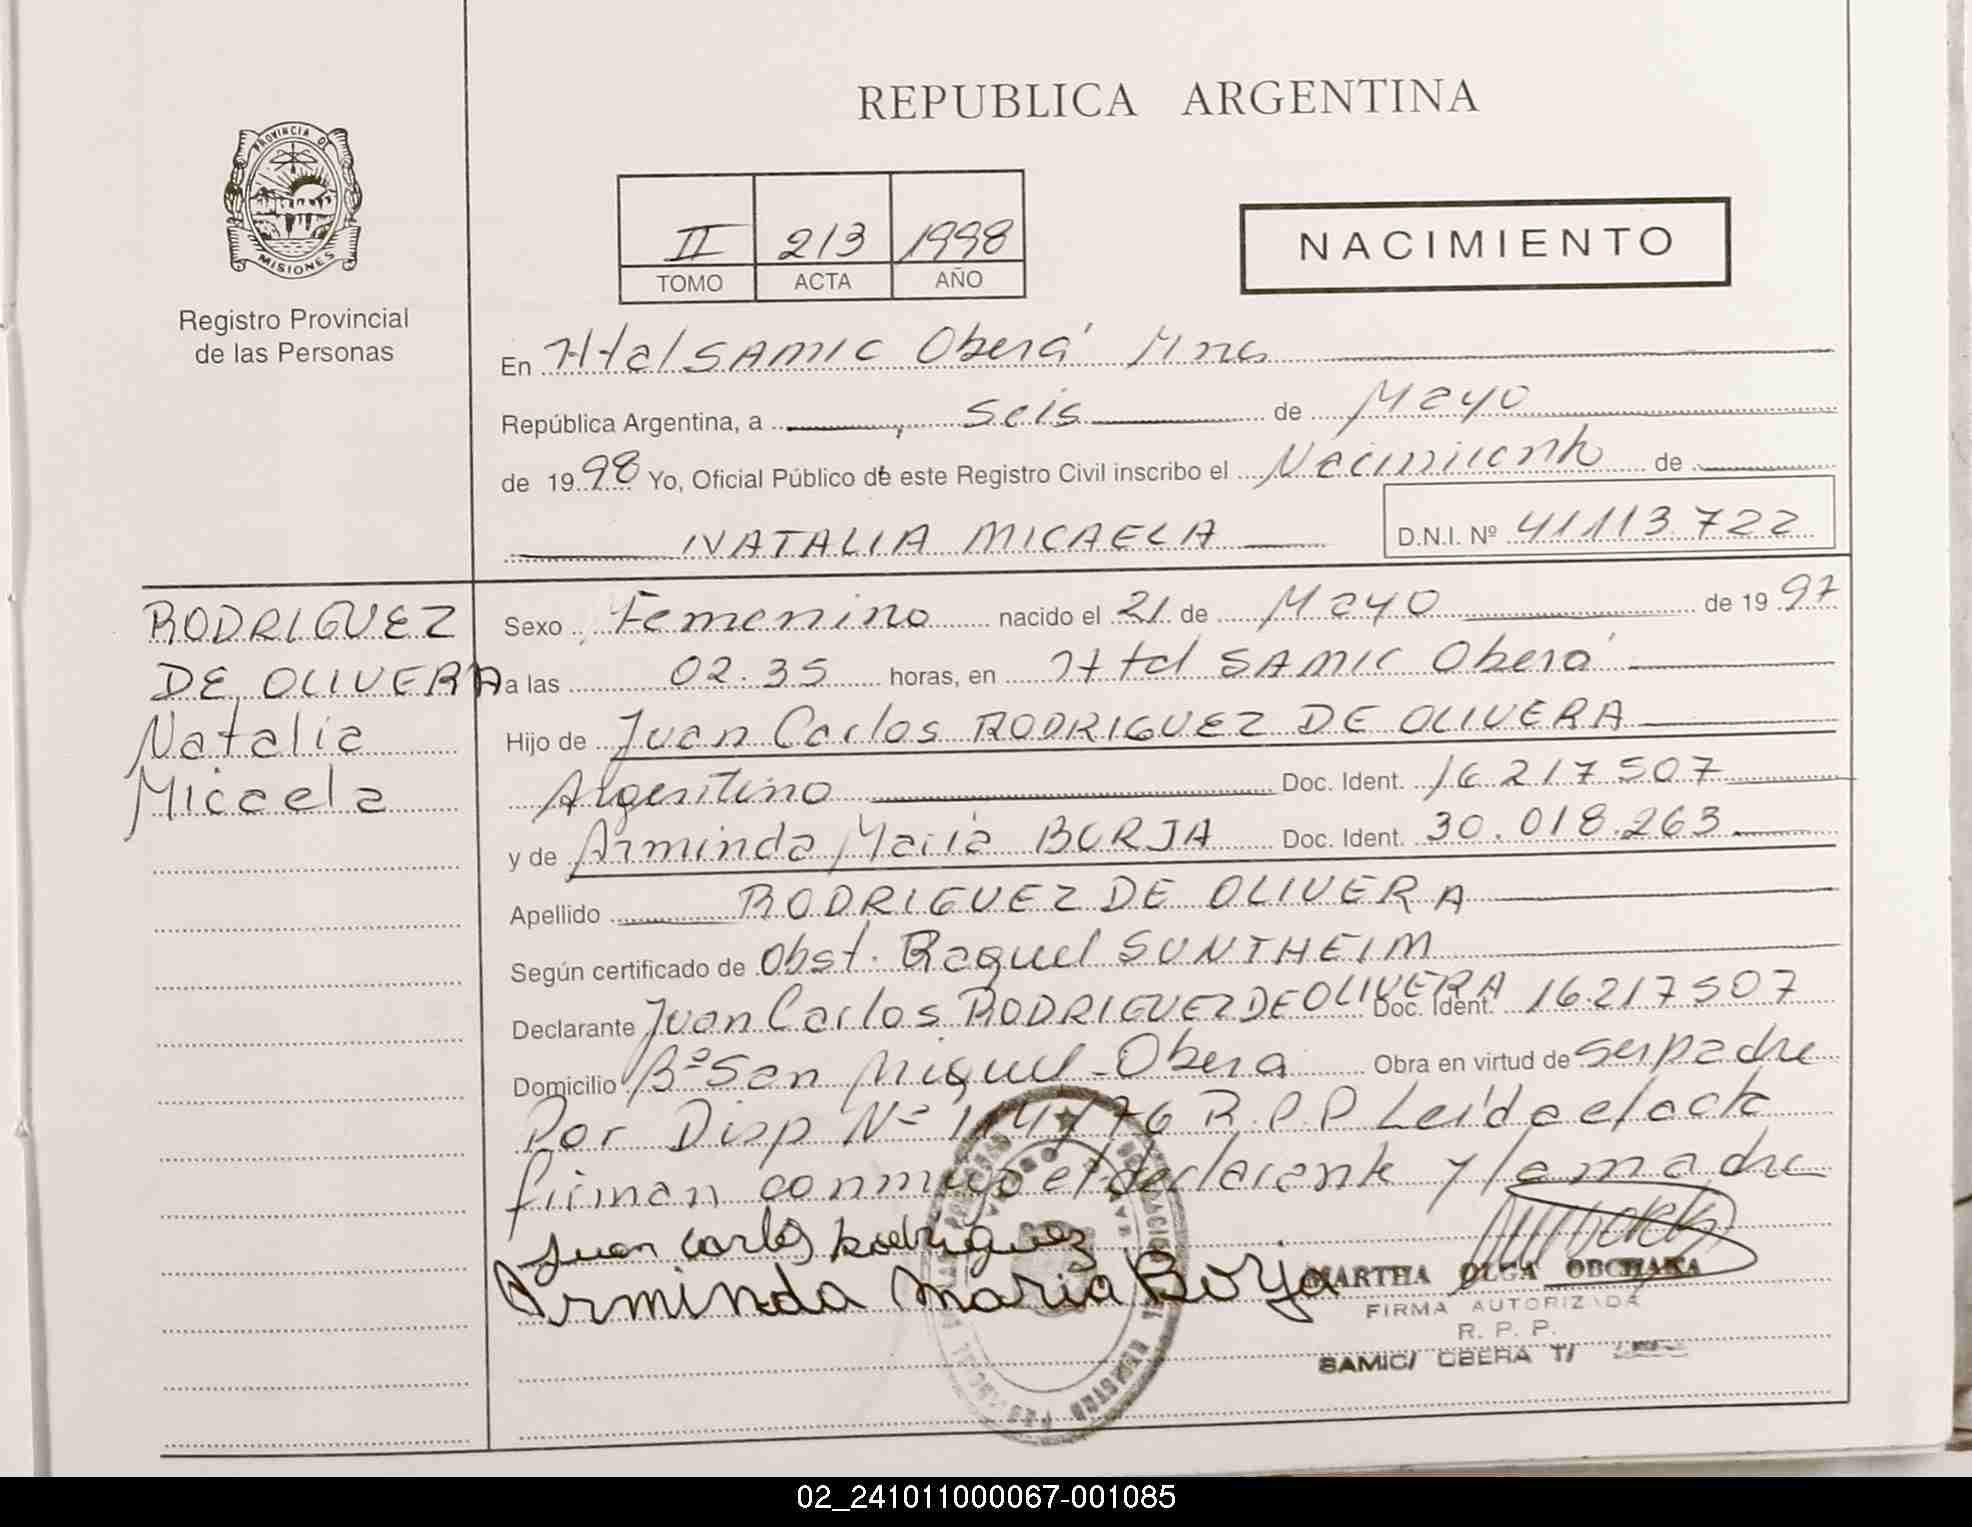 REPUBLICA ARGENTINA
PROVINCIA DE
MISIONES
Registro Provincial
de las Personas
II 213 1998
TOMO ACTA AÑO
NACIMIENTO
En Htal SAMIC Oberá Mnes
República Argentina, a , seis de Mayo
de 1998 Yo, Oficial Público de este Registro Civil inscribo el Nacimiento de
NATALIA MICAELA D.N.I. Nº 41113.722
RODRIGUEZ
DE OLIVERA
Natalia
Micaela
Sexo Femenino nacido el 21 de Mayo de 1997
a las 02.35 horas, en Htal SAMIC Oberá
Hijo de Juan Carlos RODRIGUEZ DE OLIVERA
Argentino Doc. Ident. 16.217.507
y de Arminda Maria BORJA Doc. Ident. 30.018.263
Apellido RODRIGUEZ DE OLIVERA
Según certificado de Obst. Raquel SUNTHEIM
Declarante Juan Carlos RODRIGUEZ DE OLIVERA Doc. Ident. 16.217507
Domicilio Bº San Miguel - Obera Obra en virtud de ser padre
Por Disp Nº 114/76 R.P.P Leída el acta
firman conmigo el declarante y la madre
Juan Carlos Rodriguez
Arminda Maria Borja
MARTHA OLGA OBCHAKA
FIRMA AUTORIZADA
R. P. P.
SAMIC/ OBERA T/
02_241011000067-001085